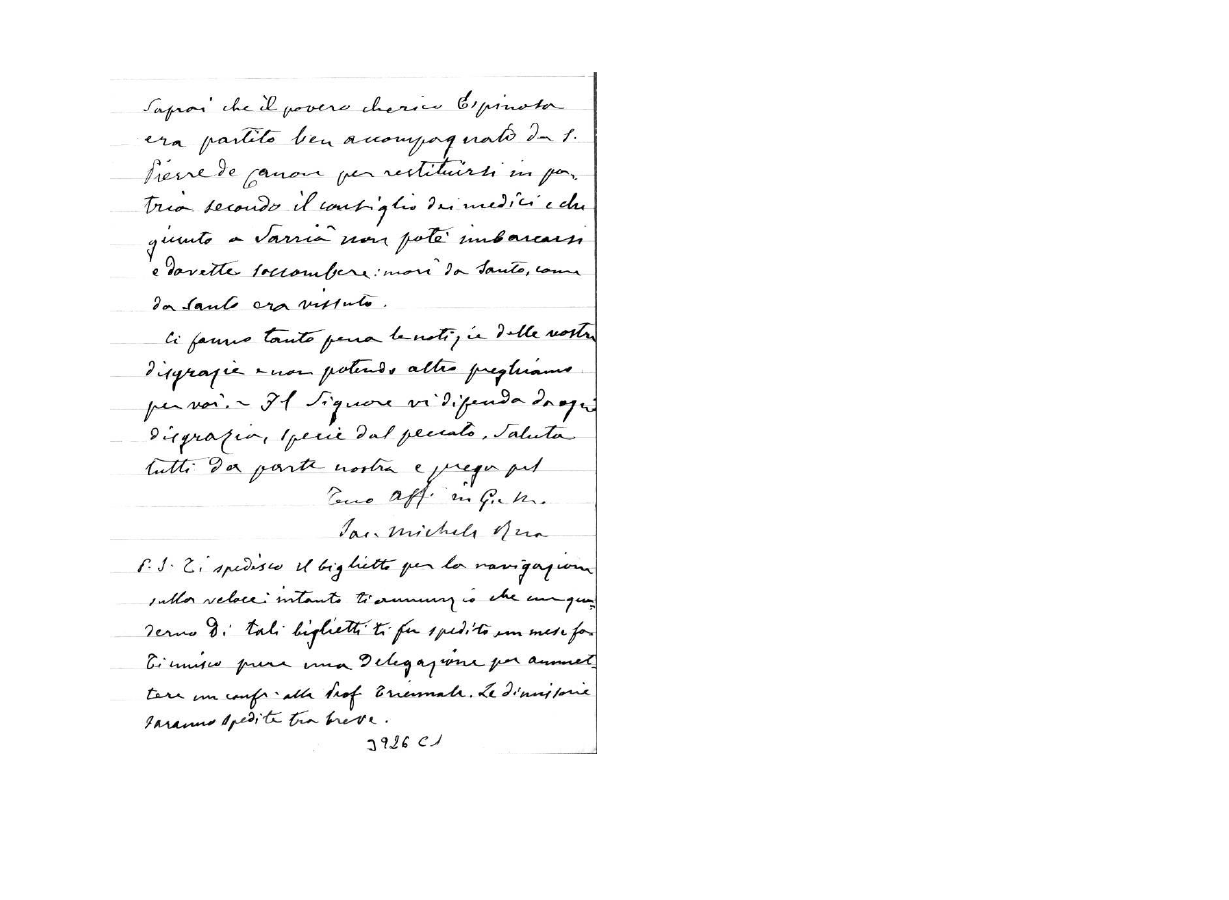 Saprai che il povero cherico Espinosa
era partito ben accompagnato da S.
Pierre de Canon per restituirsi in pa-
tria secondo il consiglio dei medici e che
giunto a Sarrià non potè imbarcarsi
e dovette soccombere: morì da Santo, come
da Santo era vissuto.
Ci fanno tanto pena le notizie delle vostre
disgrazie e non potendo altro preghiamo
per voi. - Il Signore vi difenda da ogni
disgrazia, specie dal peccato. Saluta
tutti da parte nostra e prega pel
Tuo Aff. in G. e M.
Sac. Michele Rua
P. S. Ti spedisco il biglietto per la navigazione
sulla veloce: intanto ti annunzio che un qua-
derno di tali biglietti ti fu spedito un mese fa.
Ti unisco pure una delegazione per ammet-
tere un confr. alla Prof Triennale. Le dimissorie
saranno spedite tra breve.
3926 C1